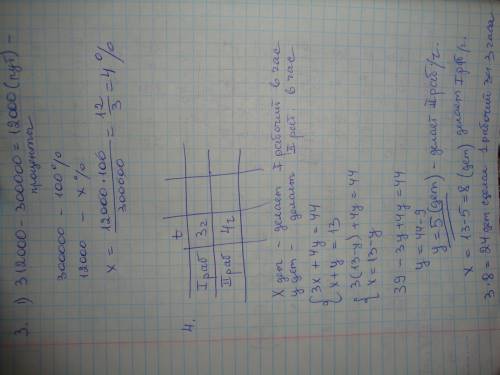 3. 1) 312000 - 300000 = 12000 (руб) -
проценты
300000 - 100%
12000 - x%
x = 12000 · 100 / 300000 = 12 / 3 = 4%
4.
t
I раб 3г
II раб 4г
X дет - делает I рабочий в час
y дет - делает II раб в час
{ 3x + 4y = 44
x + y = 13
{ 3(13-y) + 4y = 44
x = 13-y
39 - 3y + 4y = 44
y = 44-9
y = 5 (дет) - делает II раб/г.
x = 13-5 = 8 (дет) делает I раб/г.
3·8 = 24 дет сделал 1 рабочий за 3 часа